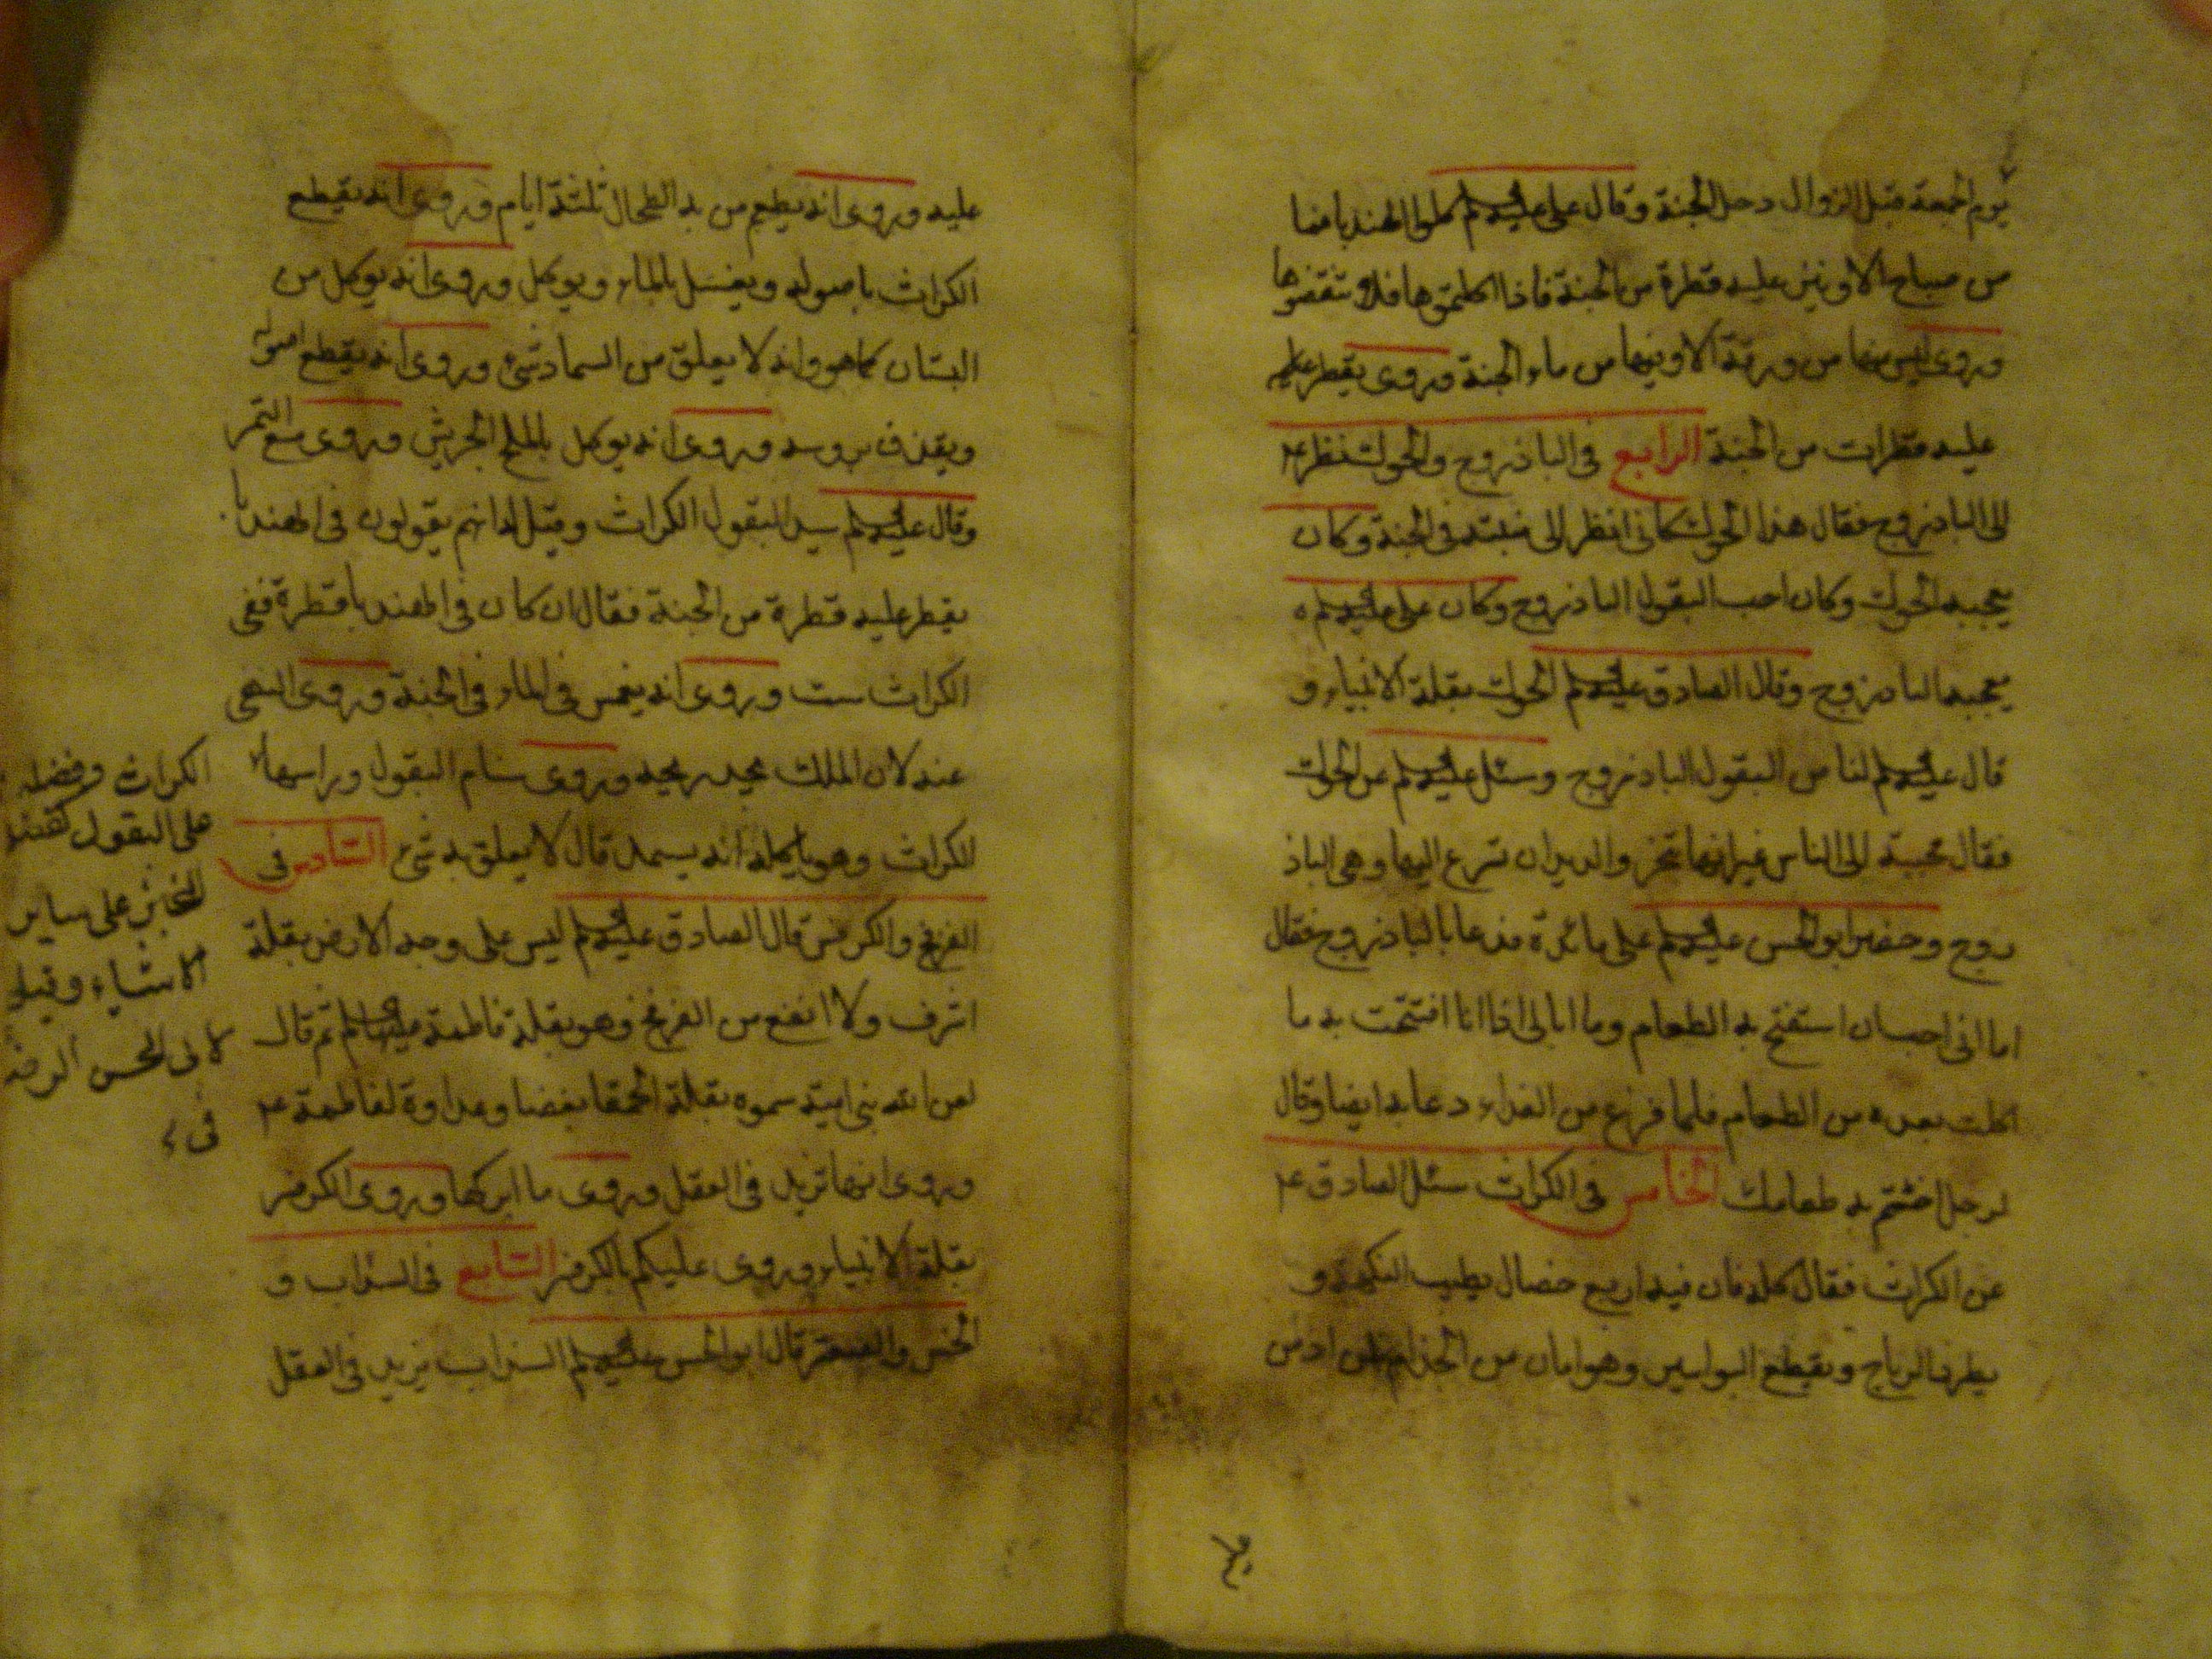 يوم الجمعة قبل الزوال دخل الجنة وقال علي عليه السلم كلوا الهندبا فما
من صباح الا وينزل عليه قطرة من الجنة فاذا اكلتموها فلا تنفضوها
وروى ليس منها من ورقة الا وفيها من ماء الجنة وروى يقطر عليه
عليه قطرات من الجنة الرابع فى الباذروج والحوك نظر ع
الى الباذروج فقال هذا الحوك كانى انظر الى منبته فى الجنة وكان
يعجبه الحوك وكان احب البقول الباذروج وكان علي عليه السلم
يعجبه الباذروج وقال الصادق عليه السلم الحوك بقلة الانبياء و
قال عليه السلم لنا من البقول الباذروج وسئل عليه السلم عن الحوك
فقال محببة الى الناس غير انها تبخر والديدان تسرع اليها وهى الباذ
روج وحضر ابو الحسن عليه السلم على مائدة فدعا بالباذروج فقال
اما انى احب ان استفتح به الطعام وما ابالى اذا انا افتتحت به ما
اكلت بعده من الطعام فلما فرغ من الغداء دعا به ايضا وقال
لرجل اختم به طعامك الخامس فى الكراث سئل الصادق ع
عن الكراث فقال كله فان فيه اربع خصال يطيب النكهة و
يطرد الرياح ويقطع البواسير وهو امان من الجذام لمن ادمن
عليه وروى انه يطعم من به الطحال ثلثة ايام وروى انه يقطع
الكراث باصوله ويغسل بالماء ويوكل وروى انه يوكل من
البستان كما هو وانه لا يعلق من السماد شئ وروى انه يقطع اصوله
ويقذف بروسه وروى انه يوكل بالملح الجريش وروى مع التمر
وقال عليه السلم سيد البقول الكراث وقيل له انهم يقولون فى الهندبا
يقطر عليه قطرة من الجنة فقال ان كان فى الهندبا قطرة ففى
الكراث ست وروى انه يغمس فى الماء فى الجنة وروى النهى
عنه لان الملك يجد ريحه وروى سنام البقول وراسها
الكراث وهو ياكله انه يسمد قال لا يعلق به شئ السادس فى
الفرفخ والكرفس قال الصادق عليه السلم ليس على وجه الارض بقلة
اشرف ولا انفع من الفرفخ وهو بقلة فاطمة عليها السلم ثم قال
لعن الله بنى امية سموه بقلة الحمقا بغضا وعداوة لفاطمة ع
وروى انها تزيد فى العقل وروى ما ابركها وروى الكرفس
بقلة الانبياء وروى عليكم بالكرفس السابع فى السداب و
الخس والصعتر قال ابو الحسن عليه السلم السداب يزيد فى العقل
الكراث وفضله
على البقول كفضل
الخبز على ساير
الاشياء وقيل
لابى الحسن الرضا
فى